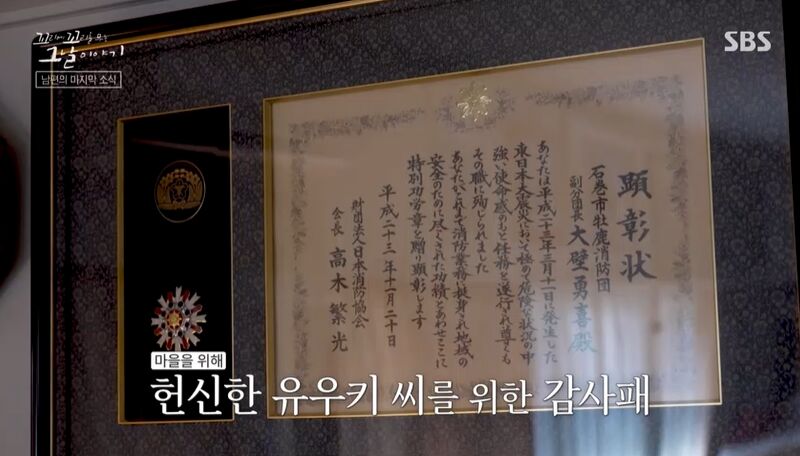 꼬리에 꼬리를 무는
그날 이야기
남편의 마지막 소식
SBS
顕彰状
石巻市牡鹿消防団
副分団長 大壁勇喜殿
あなたは平成二十三年三月十一日に発生した
東日本大震災において極めて危険な状況の中
強い使命感のもと任務を遂行され尊くも
その職に殉じられました
あなたがこれまで消防業務に挺身され地域の
安全のために尽くされた功績とあわせここに
特別功労章を贈り顕彰します
平成二十三年十一月二十日
財団法人日本消防協会
会長 高木繁光
마을을 위해
헌신한 유우키 씨를 위한 감사패